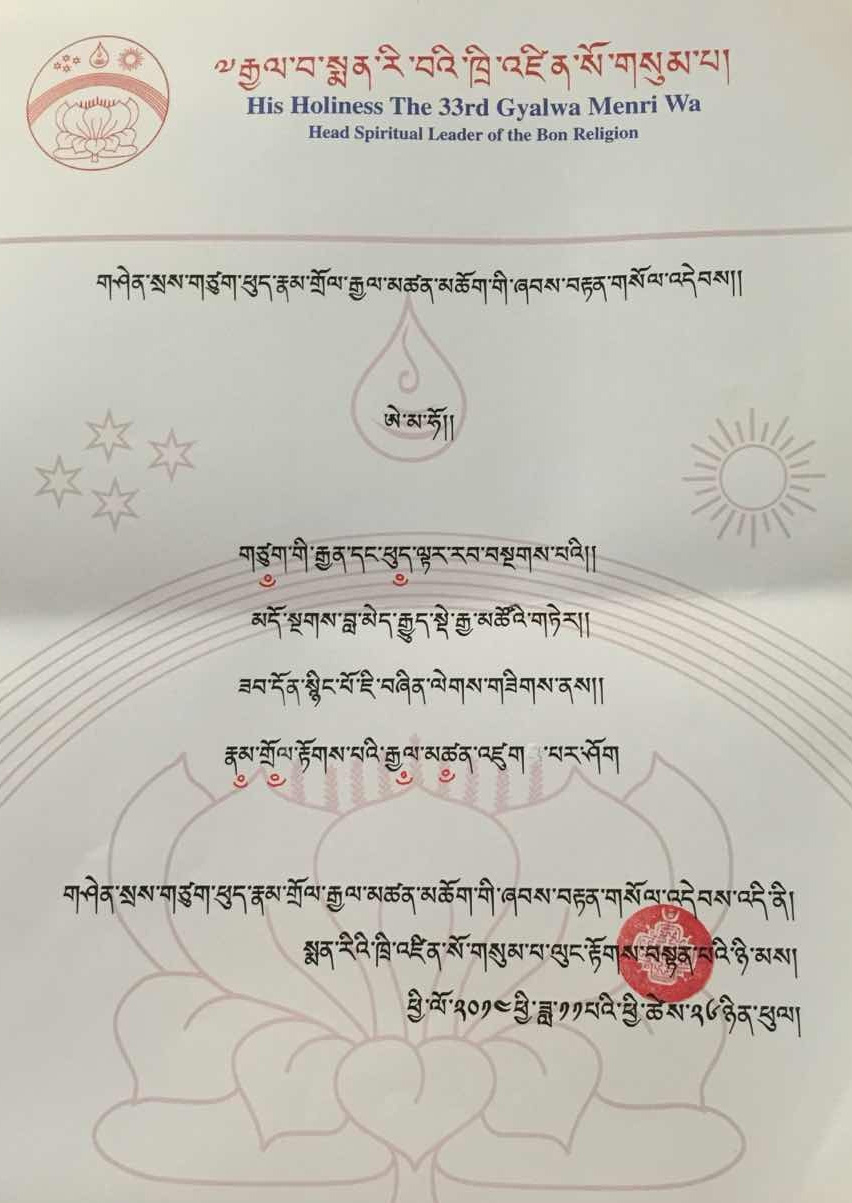 ༧རྒྱལ་བ་སྨན་རི་བའི་ཁྲི་འཛིན་སོ་གསུམ་པ།
His Holiness The 33rd Gyalwa Menri Wa
Head Spiritual Leader of the Bon Religion
གཤེན་སྲས་གཙུག་ཕུད་རྣམ་གྲོལ་རྒྱལ་མཚན་མཆོག་གི་ཞབས་བརྟན་གསོལ་འདེབས།།
ཨེ་མ་ཧོ།།
གཙུག་གི་རྒྱན་དང་ཕུད་ལྟར་རབ་བསྔགས་པའི།།
མདོ་སྔགས་བླ་མེད་རྒྱུད་སྡེ་རྒྱ་མཚོའི་གཏེར།།
ཟབ་དོན་སྙིང་པོ་ཇི་བཞིན་ལེགས་གཟིགས་ནས།།
རྣམ་གྲོལ་རྟོགས་པའི་རྒྱལ་མཚན་འཛུག་པར་ཤོག
གཤེན་སྲས་གཙུག་ཕུད་རྣམ་གྲོལ་རྒྱལ་མཚན་མཆོག་གི་ཞབས་བརྟན་གསོལ་འདེབས་འདི་ནི།
སྨན་རིའི་ཁྲི་འཛིན་སོ་གསུམ་པ་ལུང་རྟོགས་བསྟན་པའི་ཉི་མས།
ཕྱི་ལོ་༢༠༡༨ཕྱི་ཟླ་༡༡པའི་ཕྱི་ཚེས་༢༦ཉིན་ཕུལ།